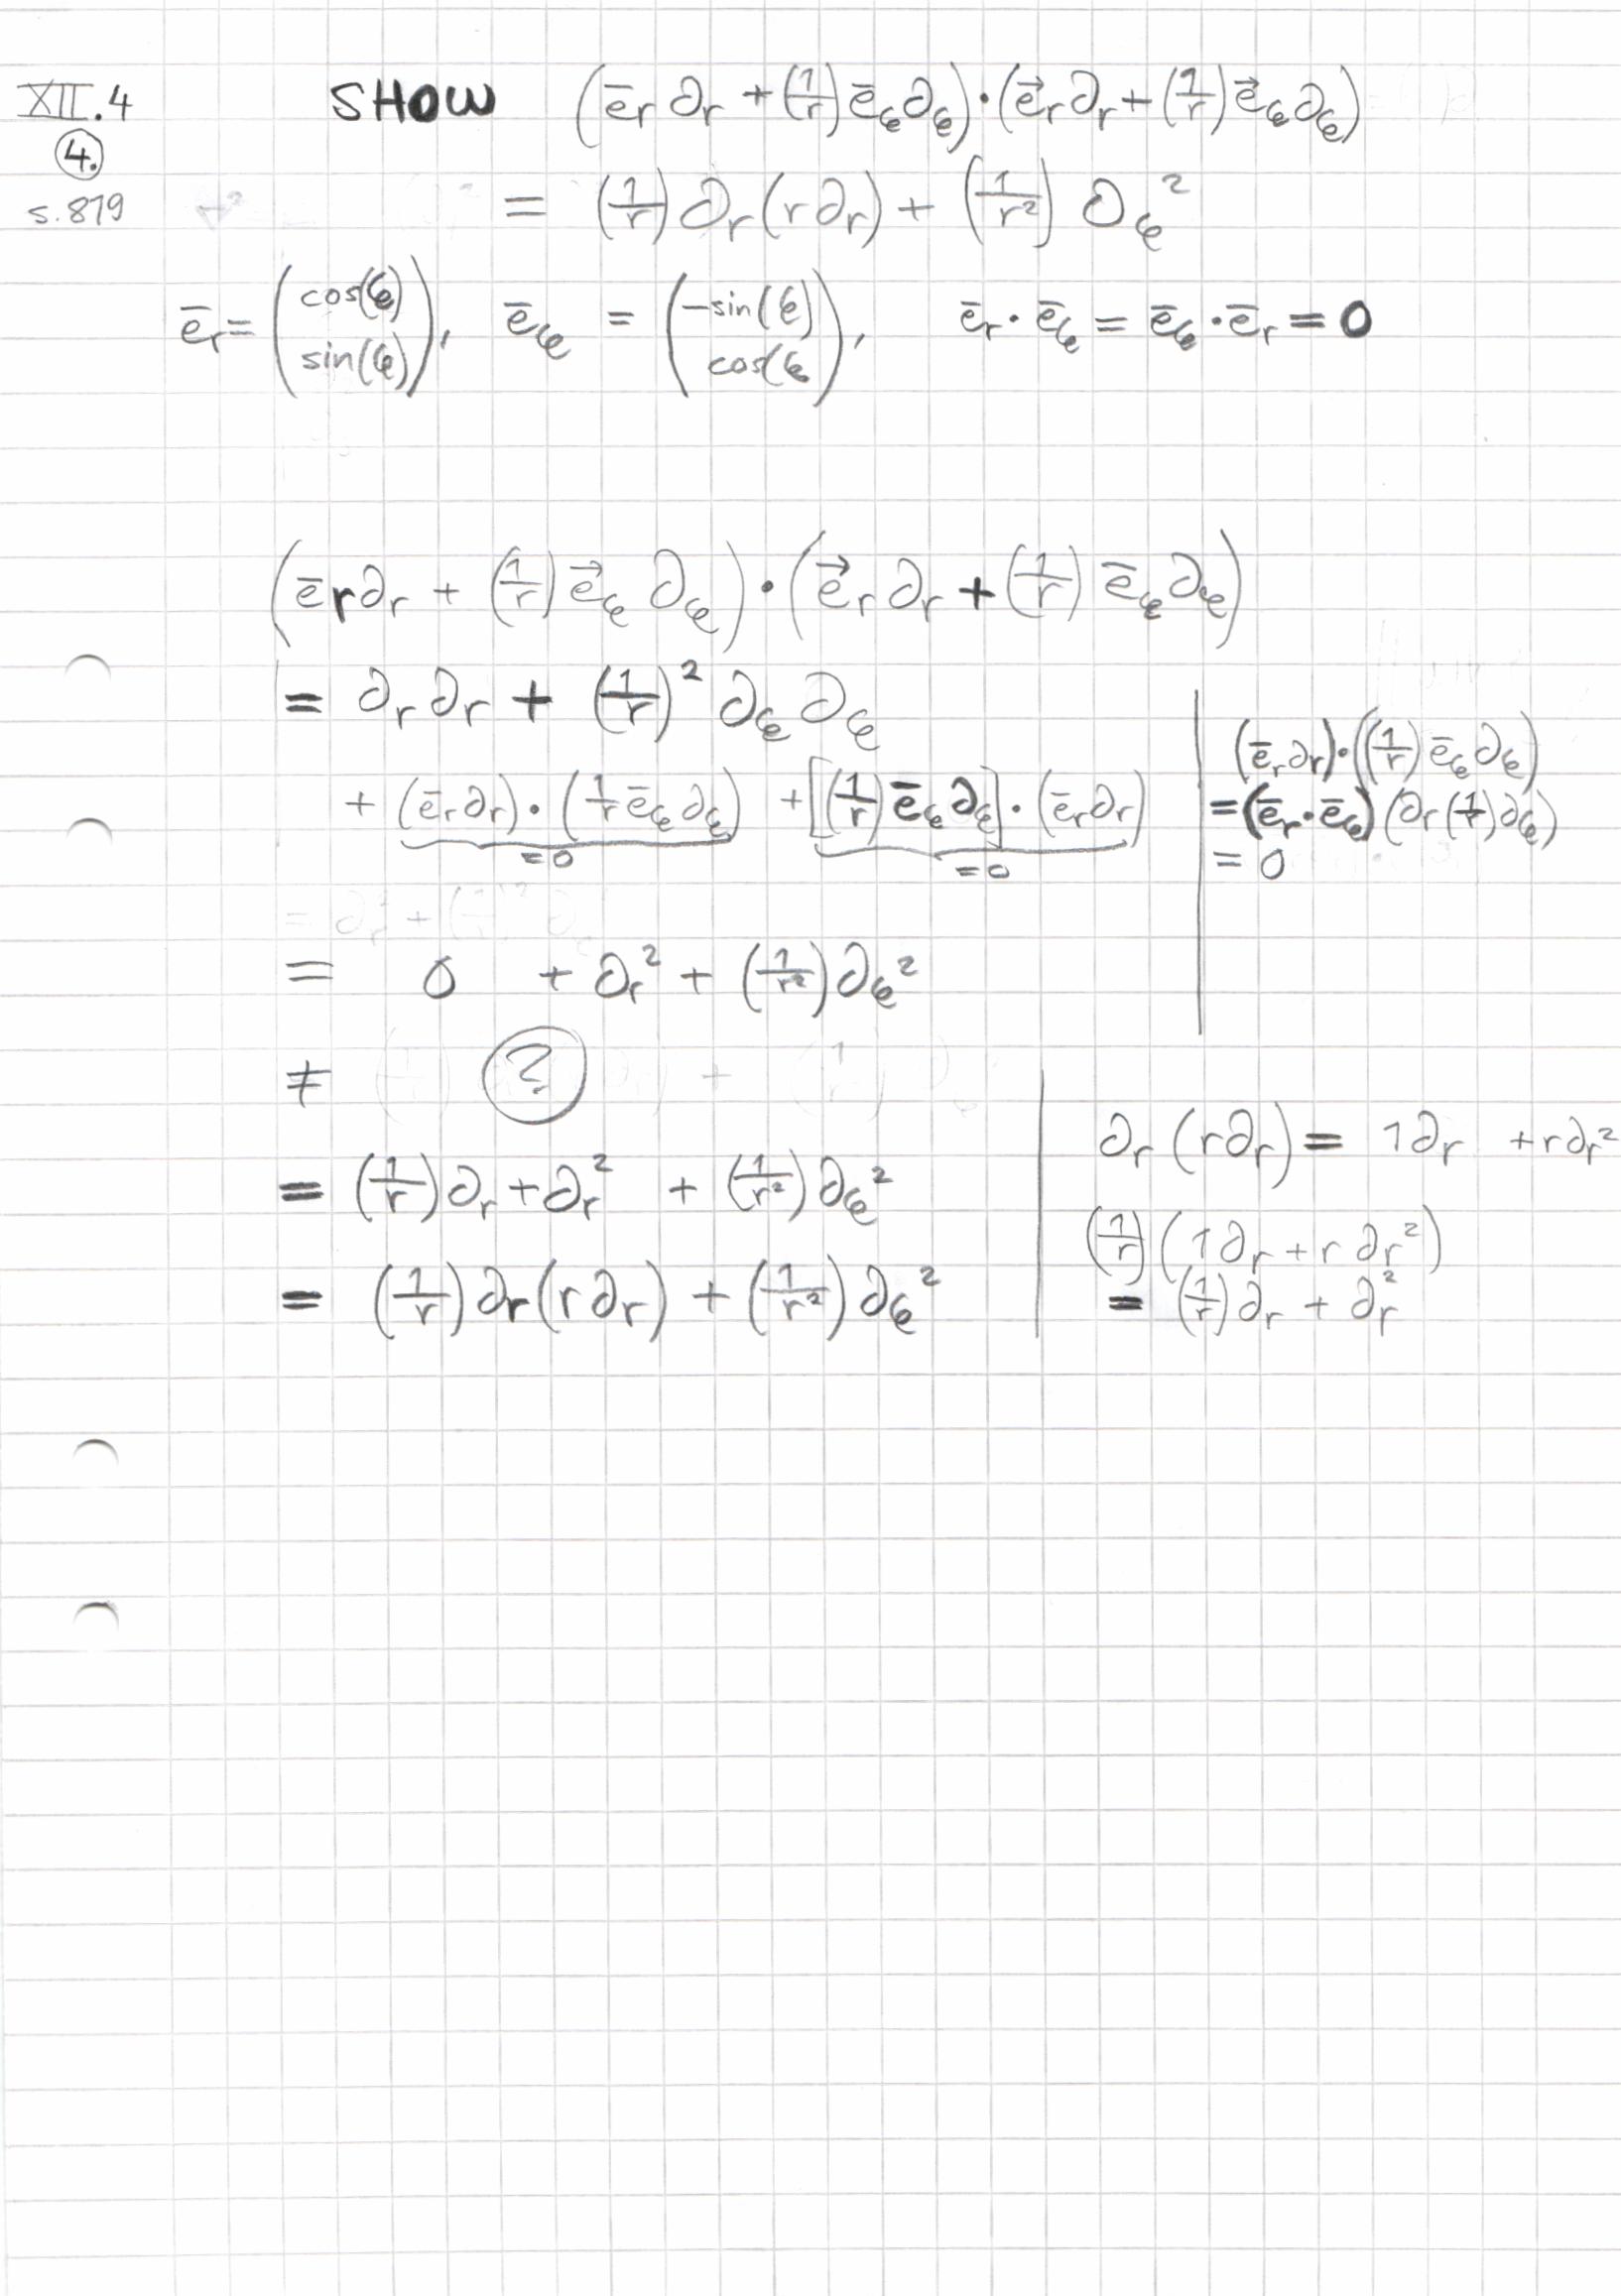 XII.4 SHOW (ēr ∂r + (1/r) ēφ ∂φ) · (e⃗r ∂r + (1/r) e⃗φ ∂φ)
④.
s.879 = (1/r) ∂r (r ∂r) + (1/r²) ∂φ²
ēr = (cos(φ) sin(φ)), ēφ = (-sin(φ) cos(φ), ēr · ēφ = ēφ · ēr = 0
(ēr ∂r + (1/r) e⃗φ ∂φ) · (e⃗r ∂r + (1/r) ēφ ∂φ)
= ∂r ∂r + (1/r)² ∂φ ∂φ
+ (ēr ∂r) · (1/r ēφ ∂φ) + [(1/r) ēφ ∂φ] · (ēr ∂r)
=0 =0
(ēr ∂r) · ((1/r) ēφ ∂φ)
= (ēr · ēφ) (∂r (1/r) ∂φ)
= 0
= 0 + ∂r² + (1/r²) ∂φ²
≠ ?
= (1/r) ∂r + ∂r² + (1/r²) ∂φ²
= (1/r) ∂r (r ∂r) + (1/r²) ∂φ²
∂r (r ∂r) = 1 ∂r + r ∂r²
(1/r) (1 ∂r + r ∂r²)
= (1/r) ∂r + ∂r²